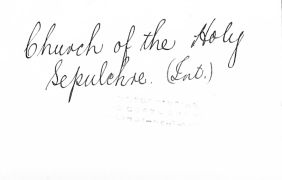 Church of the Holy
Sepulchre. (Int.)